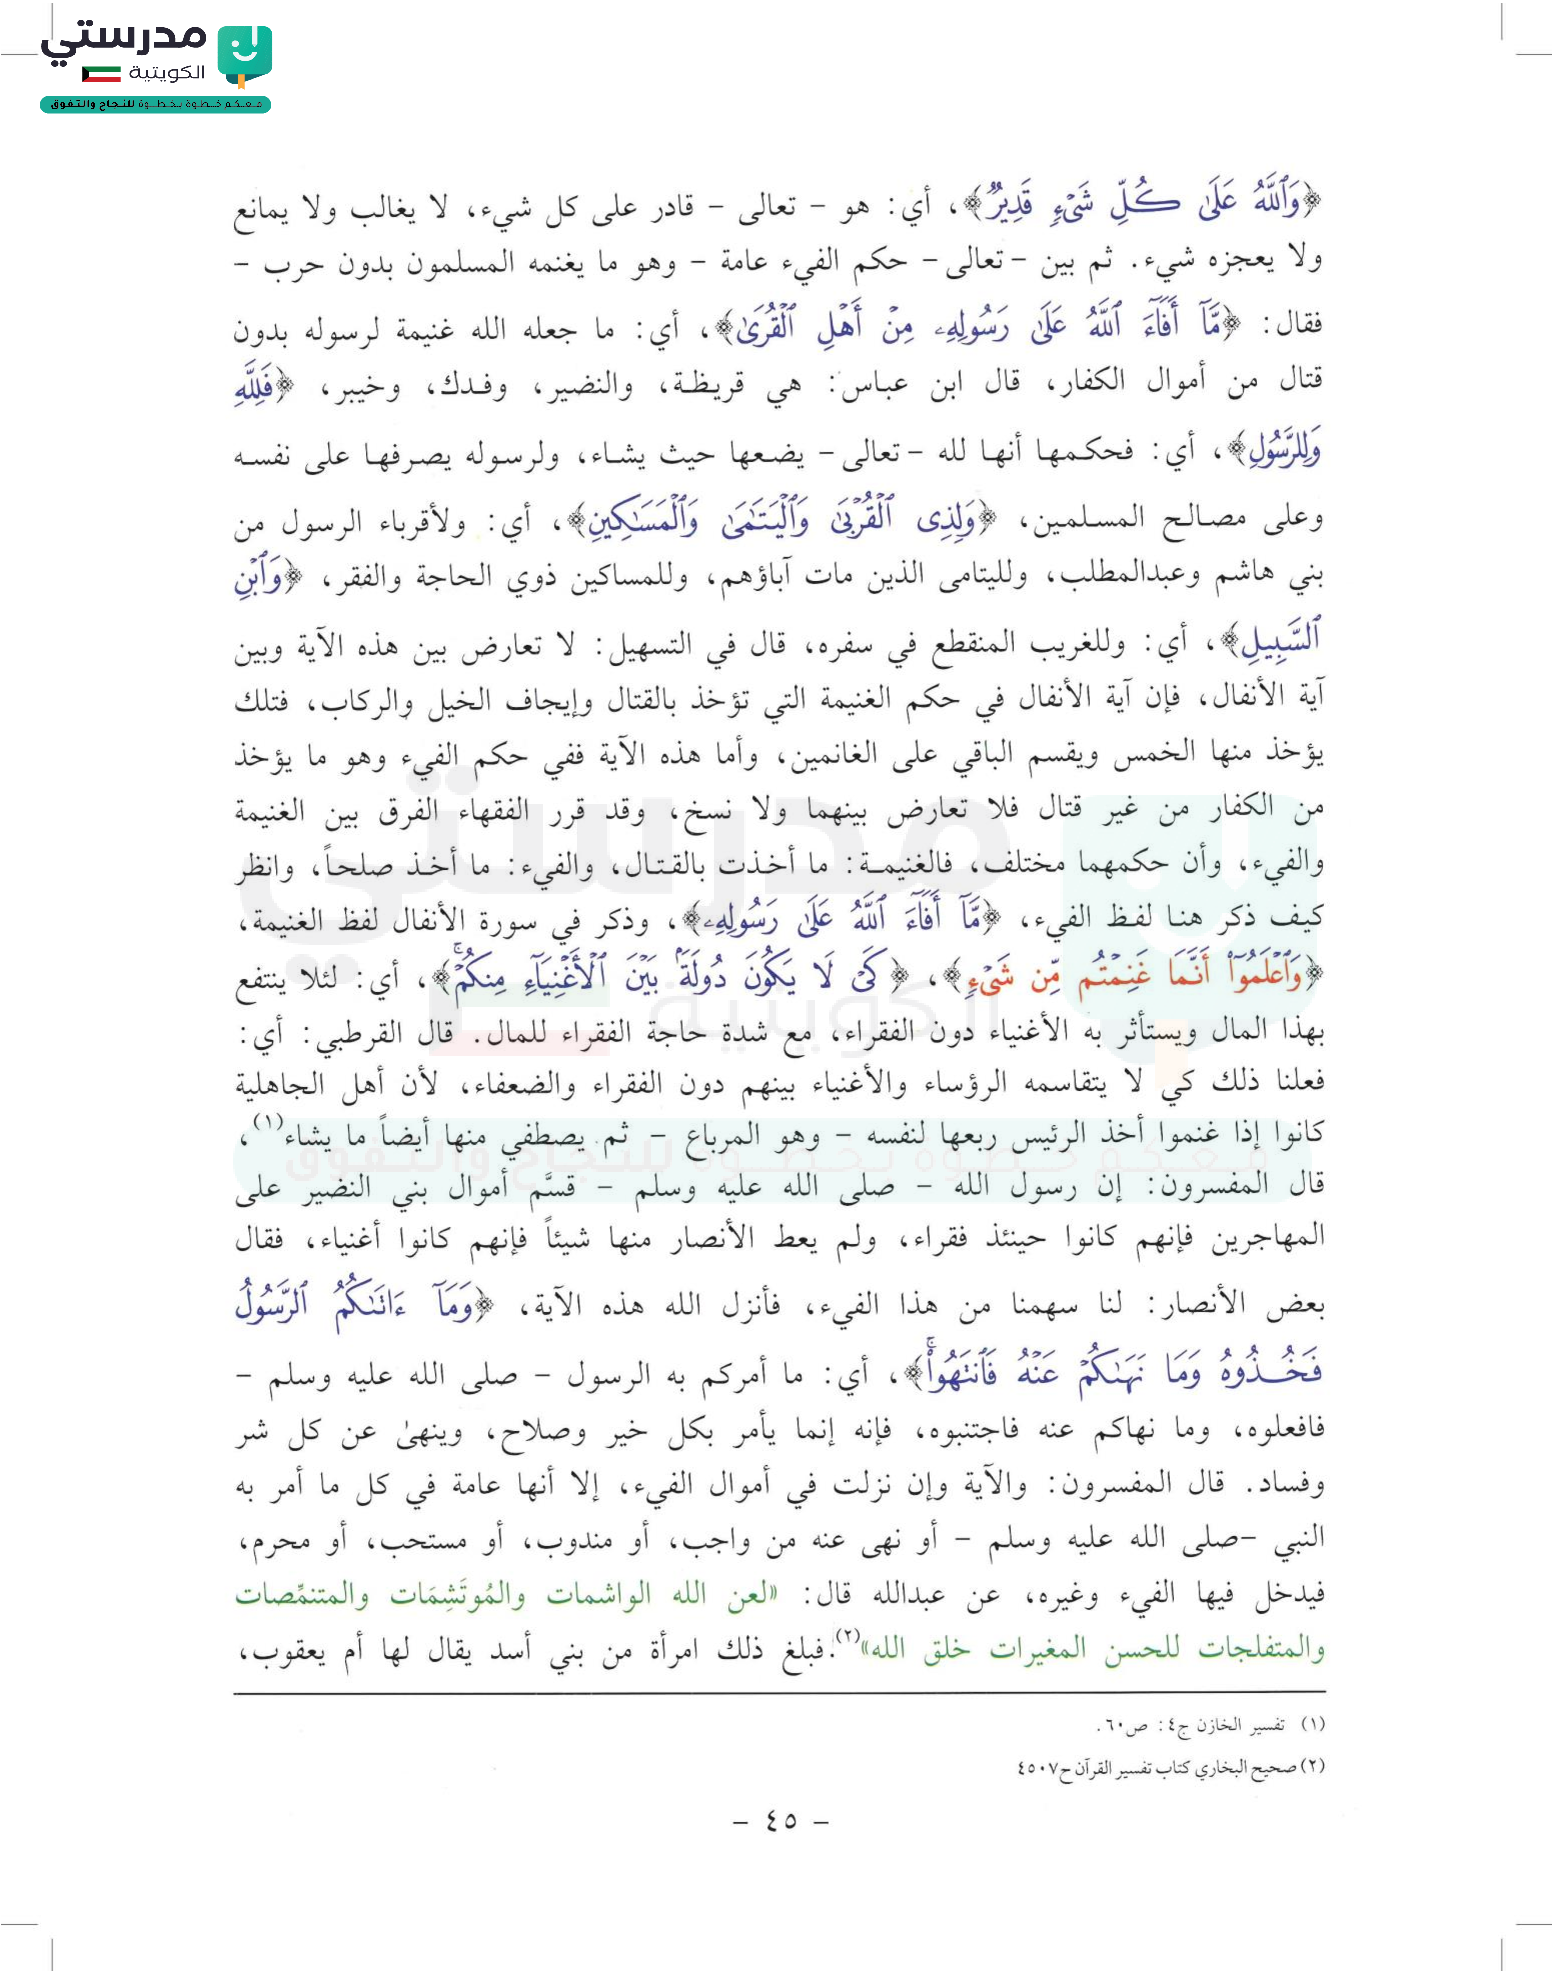 مدرستي
الكويتية
معكم خطوة بخطوة للنجاح والتفوق
﴿وَٱللَّهُ عَلَىٰ كُلِّ شَىْءٍ قَدِيرٌ﴾، أي: هو – تعالى – قادر على كل شيء، لا يغالب ولا يمانع
ولا يعجزه شيء. ثم بين –تعالى– حكم الفيء عامة – وهو ما يغنمه المسلمون بدون حرب –
فقال: ﴿مَّآ أَفَآءَ ٱللَّهُ عَلَىٰ رَسُولِهِۦ مِنْ أَهْلِ ٱلْقُرَىٰ﴾، أي: ما جعله الله غنيمة لرسوله بدون
قتال من أموال الكفار، قال ابن عباس: هي قريظة، والنضير، وفدك، وخيبر، ﴿فَلِلَّهِ
وَلِلرَّسُولِ﴾، أي: فحكمها أنها لله –تعالى– يضعها حيث يشاء، ولرسوله يصرفها على نفسه
وعلى مصالح المسلمين، ﴿وَلِذِى ٱلْقُرْبَىٰ وَٱلْيَتَٰمَىٰ وَٱلْمَسَٰكِينِ﴾، أي: ولأقرباء الرسول من
بني هاشم وعبدالمطلب، ولليتامى الذين مات آباؤهم، وللمساكين ذوي الحاجة والفقر، ﴿وَٱبْنِ
ٱلسَّبِيلِ﴾، أي: وللغريب المنقطع في سفره، قال في التسهيل: لا تعارض بين هذه الآية وبين
آية الأنفال، فإن آية الأنفال في حكم الغنيمة التي تؤخذ بالقتال وإيجاف الخيل والركاب، فتلك
يؤخذ منها الخمس ويقسم الباقي على الغانمين، وأما هذه الآية ففي حكم الفيء وهو ما يؤخذ
من الكفار من غير قتال فلا تعارض بينهما ولا نسخ، وقد قرر الفقهاء الفرق بين الغنيمة
والفيء، وأن حكمهما مختلف، فالغنيمة: ما أخذت بالقتال، والفيء: ما أخذ صلحاً، وانظر
كيف ذكر هنا لفظ الفيء، ﴿مَّآ أَفَآءَ ٱللَّهُ عَلَىٰ رَسُولِهِۦ﴾، وذكر في سورة الأنفال لفظ الغنيمة،
﴿وَٱعْلَمُوٓا۟ أَنَّمَا غَنِمْتُم مِّن شَىْءٍ﴾، ﴿كَىْ لَا يَكُونَ دُولَةًۢ بَيْنَ ٱلْأَغْنِيَآءِ مِنكُمْۚ﴾، أي: لئلا ينتفع
بهذا المال ويستأثر به الأغنياء دون الفقراء، مع شدة حاجة الفقراء للمال. قال القرطبي: أي:
فعلنا ذلك كي لا يتقاسمه الرؤساء والأغنياء بينهم دون الفقراء والضعفاء، لأن أهل الجاهلية
كانوا إذا غنموا أخذ الرئيس ربعها لنفسه – وهو المرباع – ثم يصطفي منها أيضاً ما يشاء(١)،
قال المفسرون: إن رسول الله – صلى الله عليه وسلم – قسَّم أموال بني النضير على
المهاجرين فإنهم كانوا حينئذ فقراء، ولم يعط الأنصار منها شيئاً فإنهم كانوا أغنياء، فقال
بعض الأنصار: لنا سهمنا من هذا الفيء، فأنزل الله هذه الآية، ﴿وَمَآ ءَاتَىٰكُمُ ٱلرَّسُولُ
فَخُذُوهُ وَمَا نَهَىٰكُمْ عَنْهُ فَٱنتَهُوا۟ۚ﴾، أي: ما أمركم به الرسول – صلى الله عليه وسلم –
فافعلوه، وما نهاكم عنه فاجتنبوه، فإنه إنما يأمر بكل خير وصلاح، وينهىٰ عن كل شر
وفساد. قال المفسرون: والآية وإن نزلت في أموال الفيء، إلا أنها عامة في كل ما أمر به
النبي –صلى الله عليه وسلم – أو نهى عنه من واجب، أو مندوب، أو مستحب، أو محرم،
فيدخل فيها الفيء وغيره، عن عبدالله قال: «لعن الله الواشمات والمُوتَشِمَات والمتنمِّصات
والمتفلجات للحسن المغيرات خلق الله»(٢). فبلغ ذلك امرأة من بني أسد يقال لها أم يعقوب،
(١) تفسير الخازن ج٤: ص٦٠.
(٢) صحيح البخاري كتاب تفسير القرآن ح٤٥٠٧
– ٤٥ –